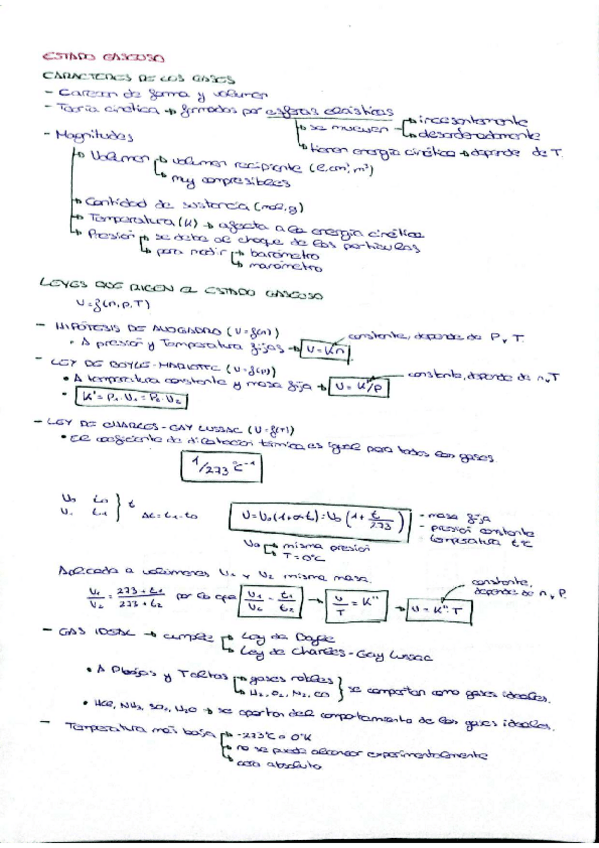 ESTADO GASEOSO
CARACTERES DE LOS GASES
- Carecen de forma y volumen
- Teoría cinética → formados por esferas elásticas
↳ se mueven → incesantemente
↳ desordenadamente
↳ tienen energía cinética → depende de T.
- Magnitudes
↳ Volumen → volumen recipiente (l, cm³, m³)
↳ muy compresibles
↳ Cantidad de sustancia (mol, g)
↳ Temperatura (K) → afecta a la energía cinética
↳ Presión → se debe al choque de las partículas
↳ para medir → barómetro
↳ manómetro
LEYES QUE RIGEN EL ESTADO GASEOSO
V = f(n, p, T)
- HIPÓTESIS DE AVOGADRO (V = f(n))
• A presión y Temperatura fijas → V = K n ← constante, depende de P y T.
- LEY DE BOYLE-MARIOTTE (V = f(p))
• A temperatura constante y masa fija → V = K'/p ← constante, depende de n y T
• K' = P₁ · V₁ = P₂ · V₂
- LEY DE CHARLES - GAY LUSSAC (V = f(T))
• El coeficiente de dilatación térmica es igual para todos los gases.
1/273 °C⁻¹
V₀ t₀ } t
V₁ t₁ Δt = t₁ - t₀
V = V₀ (1 + α·t) = V₀ (1 + t/273)
- masa fija
- presión constante
- temperatura t °C
V₀ → misma presión
↳ T = 0°C
Aplicada a volúmenes V₁ y V₂ misma masa.
V₁/V₂ = 273 + t₁/273 + t₂ por lo que V₁/V₂ = t₁/t₂ → V/T = K'' → V = K'' · T ← constante, depende de n y P.
- GAS IDEAL → cumple → Ley de Boyle
↳ Ley de Charles - Gay Lussac
• A P bajas y T altas → gases nobles
↳ H₂, O₂, N₂, CO } se comportan como gases ideales.
• HCl, NH₃, SO₂, H₂O → se apartan del comportamiento de los gases ideales.
- Temperatura más baja → -273°C o 0°K
↳ no se puede alcanzar experimentalmente
↳ cero absoluto